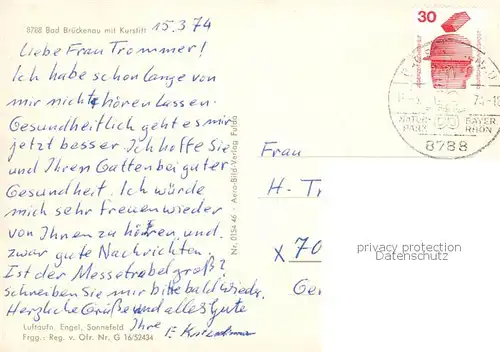 8788 Bad Brückenau mit Kurstift
15.3.74
Liebe Frau Trommer!
Ich habe schon lange von
mir nicht hören lassen.
Gesundheitlich geht es mir
jetzt besser. Ich hoffe Sie
und Ihren Gatten bei guter
Gesundheit. Ich würde
mich sehr freuen wieder
von Ihnen zu hören und
zwar gute Nachrichten.
Ist der Messetrubel groß?
Schreiben Sie mir bitte bald wieder.
Herzliche Grüße und alles Gute
Ihre E.
Luftaufn. Engel, Sonnefeld
Frgg.- Reg. v. Ofr. Nr. G 16/52434
Nr. 0154 46 - Aero-Bild-Verlag Fulda
30
DEUTSCHE BUNDESPOST
NATUR-
PARK
BAYER.
RHÖN
8788
Frau
H. Tr
x 70
Ger
privacy protection
Datenschutz